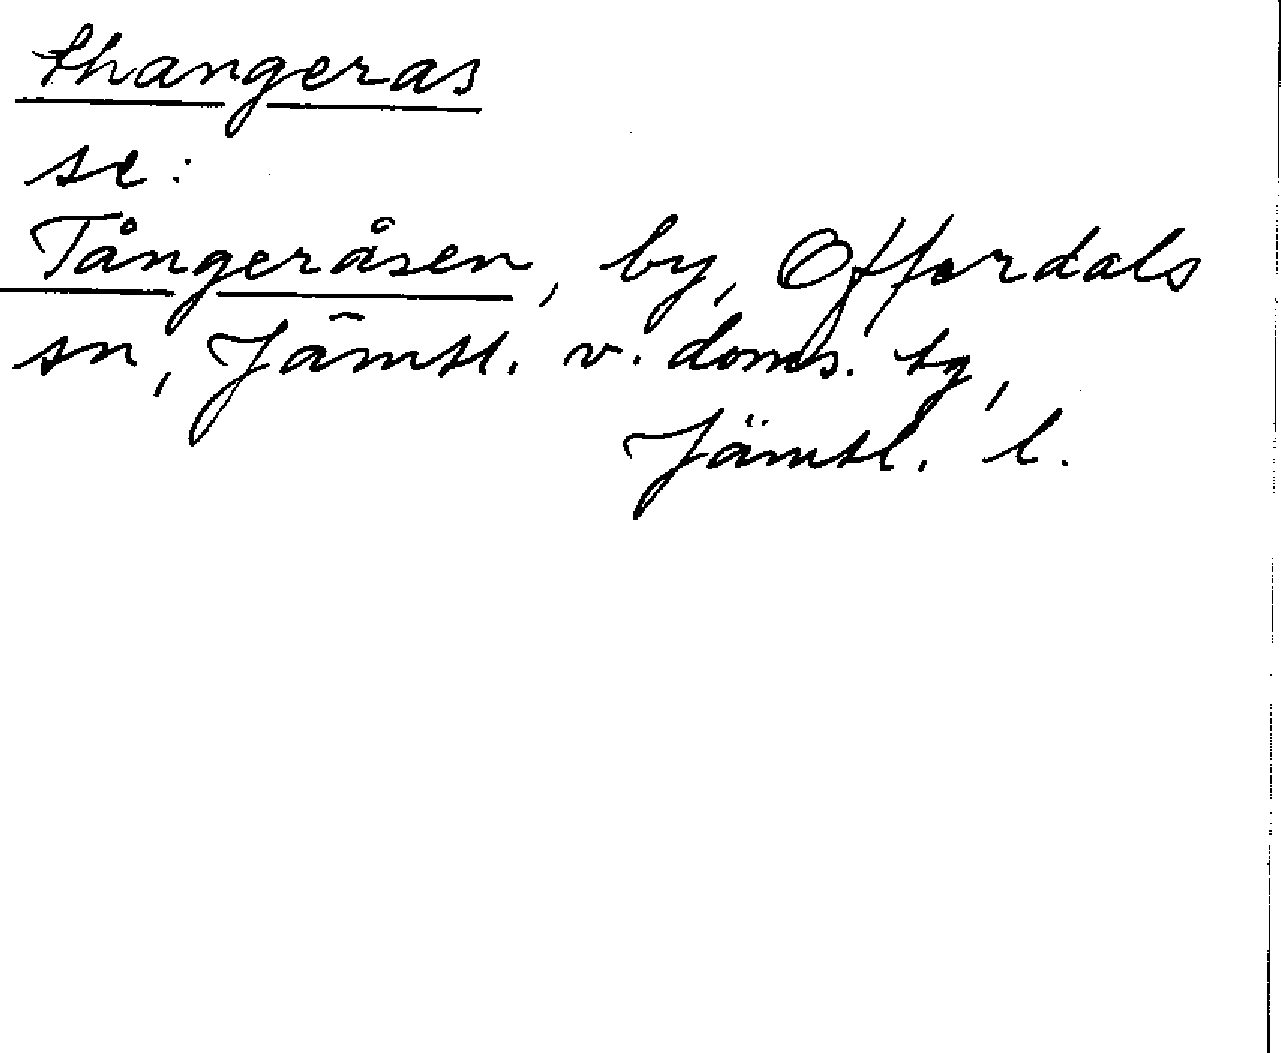 thangeras
se:
Tångeråsen, by, Offerdals
sn, Jämtl. v. doms. tg,
Jämtl. l.